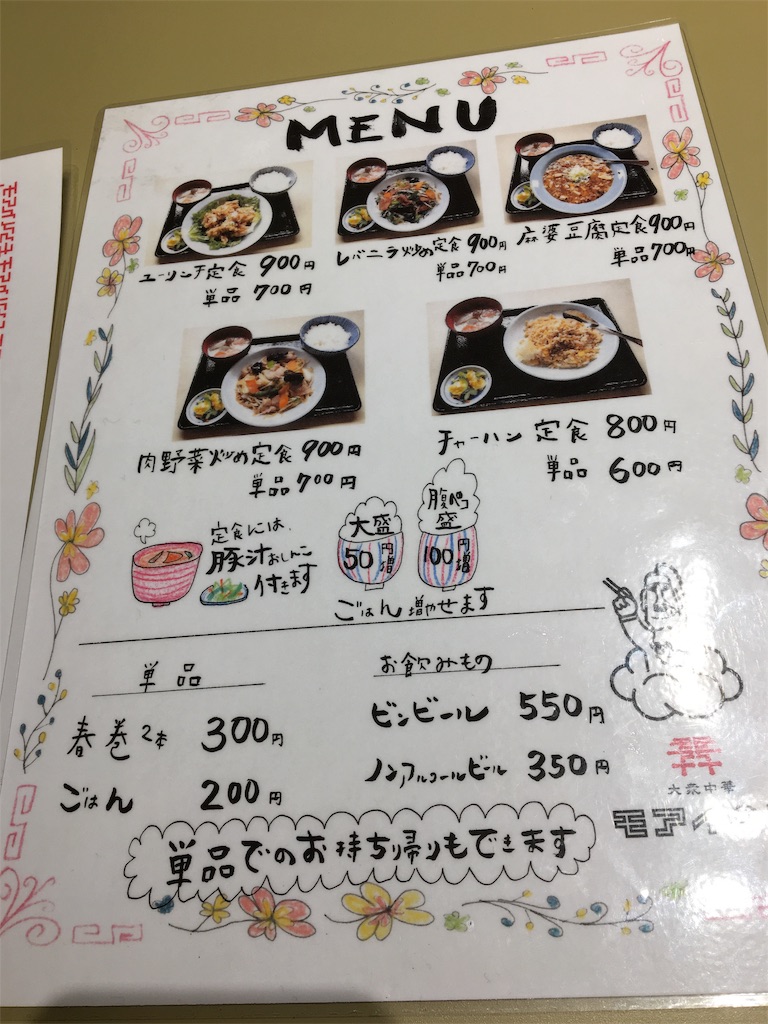 MENU
ユーリンチ定食 900円
単品 700円
レバニラ炒め定食 900円
単品 700円
麻婆豆腐定食 900円
単品 700円
肉野菜炒め定食 900円
単品 700円
チャーハン 定食 800円
単品 600円
定食には、
豚汁おしんこ
付きます
大盛
50円増
腹ペコ
盛
100円増
ごはん 増やせます
単品
春巻 2本 300円
ごはん 200円
お飲みもの
ビンビール 550円
ノンアルコールビール 350円
単品でのお持ち帰りもできます
大衆中華
モアイ